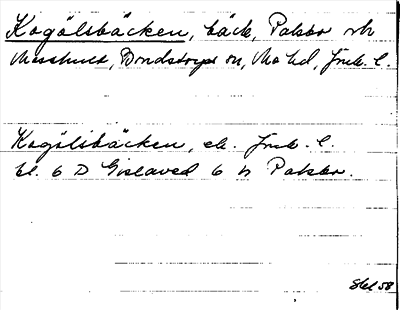 Kogölsbäcken, bäck, Palsbo och
Masshult, Bondstorps sn, Mo hd, Jmk. l.
Kogölsbäcken, ek. Jmk. l.
bl. 6 D Gislaved 6 h Palsbo.
Skl 58